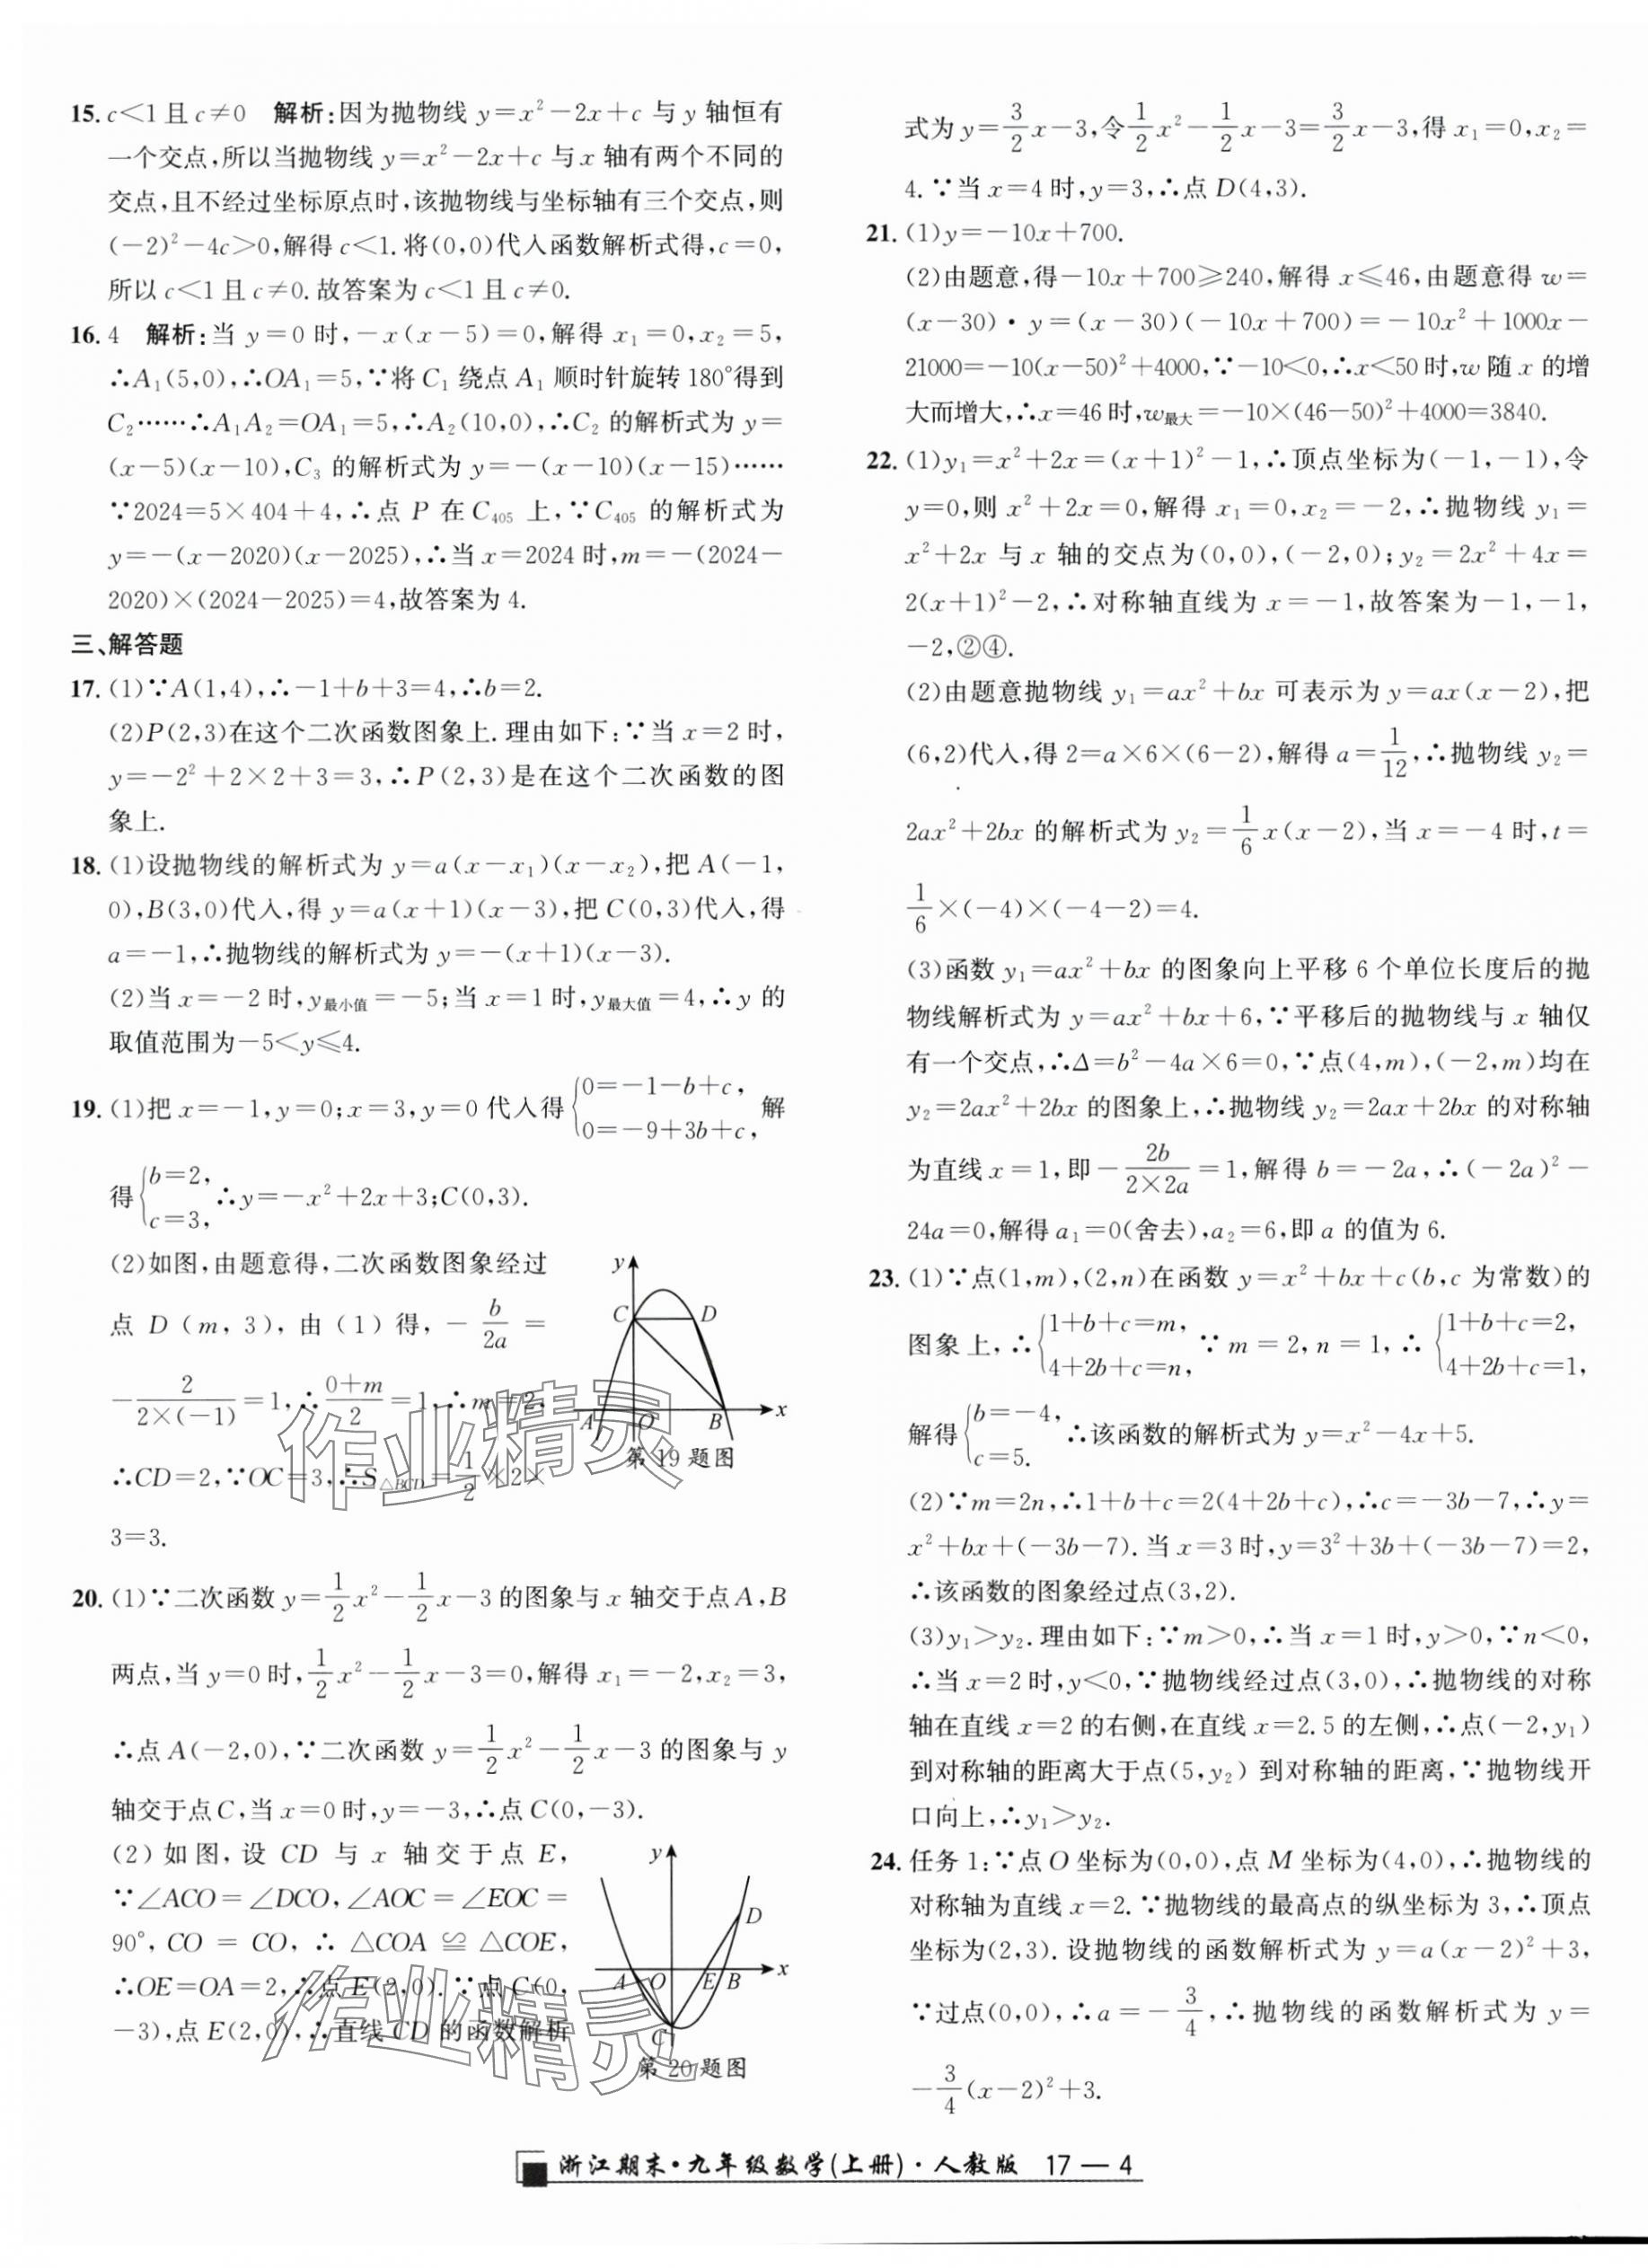 15. c<1且c≠0 解析:因为抛物线 y=x²-2x+c 与 y 轴恒有
一个交点,所以当抛物线 y=x²-2x+c 与 x 轴有两个不同的
交点,且不经过坐标原点时,该抛物线与坐标轴有三个交点,则
(-2)²-4c>0,解得 c<1.将(0,0)代入函数解析式得,c=0,
所以 c<1 且 c≠0.故答案为 c<1 且 c≠0.
16. 4 解析:当 y=0 时,-x(x-5)=0,解得 x₁=0,x₂=5,
∴A₁(5,0),∴OA₁=5,∵将 C₁ 绕点 A₁ 顺时针旋转 180°得到
C₂……∴A₁A₂=OA₁=5,∴A₂(10,0),∴C₂ 的解析式为 y=
(x-5)(x-10),C₃ 的解析式为 y=-(x-10)(x-15)……
∵2024=5×404+4,∴点 P 在 C₄₀₅ 上,∵C₄₀₅ 的解析式为
y=-(x-2020)(x-2025),∴当 x=2024 时,m=-(2024-
2020)×(2024-2025)=4,故答案为 4.
三、解答题
17. (1)∵A(1,4),∴-1+b+3=4,∴b=2.
(2)P(2,3)在这个二次函数图象上.理由如下:∵当 x=2 时,
y=-2²+2×2+3=3,∴P(2,3)是在这个二次函数的图
象上.
18. (1)设抛物线的解析式为 y=a(x-x₁)(x-x₂),把 A(-1,
0),B(3,0)代入,得 y=a(x+1)(x-3),把 C(0,3)代入,得
a=-1,∴抛物线的解析式为 y=-(x+1)(x-3).
(2)当 x=-2 时,y最小值=-5;当 x=1 时,y最大值=4,∴y 的
取值范围为-5<y≤4.
19. (1)把 x=-1,y=0;x=3,y=0 代入得 {0=-1-b+c, 0=-9+3b+c, 解
得 {b=2, c=3, ∴y=-x²+2x+3;C(0,3).
(2)如图,由题意得,二次函数图象经过
点 D(m,3),由(1)得,-b/2a=
-2/(2×(-1))=1,∴(0+m)/2=1,∴m+2,
∴CD=2,∵OC=3,∴S△BCD=1/2×2×
3=3.
y
C
D
A
O
B
x
第 19 题图
20. (1)∵二次函数 y=1/2x²-1/2x-3 的图象与 x 轴交于点 A,B
两点,当 y=0 时,1/2x²-1/2x-3=0,解得 x₁=-2,x₂=3,
∴点 A(-2,0),∵二次函数 y=1/2x²-1/2x-3 的图象与 y
轴交于点 C,当 x=0 时,y=-3,∴点 C(0,-3).
(2)如图,设 CD 与 x 轴交于点 E,
∵∠ACO=∠DCO,∠AOC=∠EOC=
90°,CO=CO,∴△COA≌△COE,
∴OE=OA=2,∴点 E(2,0).∵点 C(0,
-3),点 E(2,0),∴直线 CD 的函数解析
y
D
A
O
E
B
x
C
第 20 题图
式为 y=3/2x-3,令1/2x²-1/2x-3=3/2x-3,得 x₁=0,x₂=
4.∵当 x=4 时,y=3,∴点 D(4,3).
21. (1)y=-10x+700.
(2)由题意,得-10x+700≥240,解得 x≤46,由题意得 w=
(x-30)·y=(x-30)(-10x+700)=-10x²+1000x-
21000=-10(x-50)²+4000,∵-10<0,∴x<50 时,w 随 x 的增
大而增大,∴x=46 时,w最大=-10×(46-50)²+4000=3840.
22. (1)y₁=x²+2x=(x+1)²-1,∴顶点坐标为(-1,-1),令
y=0,则 x²+2x=0,解得 x₁=0,x₂=-2,∴抛物线 y₁=
x²+2x 与 x 轴的交点为(0,0),(-2,0);y₂=2x²+4x=
2(x+1)²-2,∴对称轴直线为 x=-1,故答案为-1,-1,
-2,②④.
(2)由题意抛物线 y₁=ax²+bx 可表示为 y=ax(x-2),把
(6,2)代入,得 2=a×6×(6-2),解得 a=1/12,∴抛物线 y₂=
2ax²+2bx 的解析式为 y₂=1/6x(x-2),当 x=-4 时,t=
1/6×(-4)×(-4-2)=4.
(3)函数 y₁=ax²+bx 的图象向上平移 6 个单位长度后的抛
物线解析式为 y=ax²+bx+6,∵平移后的抛物线与 x 轴仅
有一个交点,∴Δ=b²-4a×6=0,∵点(4,m),(-2,m)均在
y₂=2ax²+2bx 的图象上,∴抛物线 y₂=2ax+2bx 的对称轴
为直线 x=1,即-2b/(2×2a)=1,解得 b=-2a,∴(-2a)²-
24a=0,解得 a₁=0(舍去),a₂=6,即 a 的值为 6.
23. (1)∵点(1,m),(2,n)在函数 y=x²+bx+c(b,c 为常数)的
图象上,∴{1+b+c=m, 4+2b+c=n, ∵m=2,n=1,∴{1+b+c=2, 4+2b+c=1,
解得{b=-4, c=5. ∴该函数的解析式为 y=x²-4x+5.
(2)∵m=2n,∴1+b+c=2(4+2b+c),∴c=-3b-7,∴y=
x²+bx+(-3b-7).当 x=3 时,y=3²+3b+(-3b-7)=2,
∴该函数的图象经过点(3,2).
(3)y₁>y₂.理由如下:∵m>0,∴当 x=1 时,y>0,∵n<0,
∴当 x=2 时,y<0,∵抛物线经过点(3,0),∴抛物线的对称
轴在直线 x=2 的右侧,在直线 x=2.5 的左侧,∴点(-2,y₁)
到对称轴的距离大于点(5,y₂)到对称轴的距离,∵抛物线开
口向上,∴y₁>y₂.
24. 任务 1:∵点 O 坐标为(0,0),点 M 坐标为(4,0),∴抛物线的
对称轴为直线 x=2.∵抛物线的最高点的纵坐标为 3,∴顶点
坐标为(2,3).设抛物线的函数解析式为 y=a(x-2)²+3,
∵过点(0,0),∴a=-3/4,∴抛物线的函数解析式为 y=
-3/4(x-2)²+3.
浙江期末·九年级数学(上册)·人教版 17—4
作业精灵
作业精灵